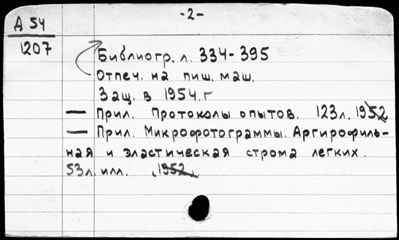 Д 54
1207
-2-
Библиогр. л. 334-395
Отпеч. на пиш. маш.
Защ. в 1954. г
— Прил. Протоколы опытов. 123 л. 1952
— Прил. Микрофотограммы. Аргирофиль-
ная и эластическая строма легких.
53 л. илл. 1952